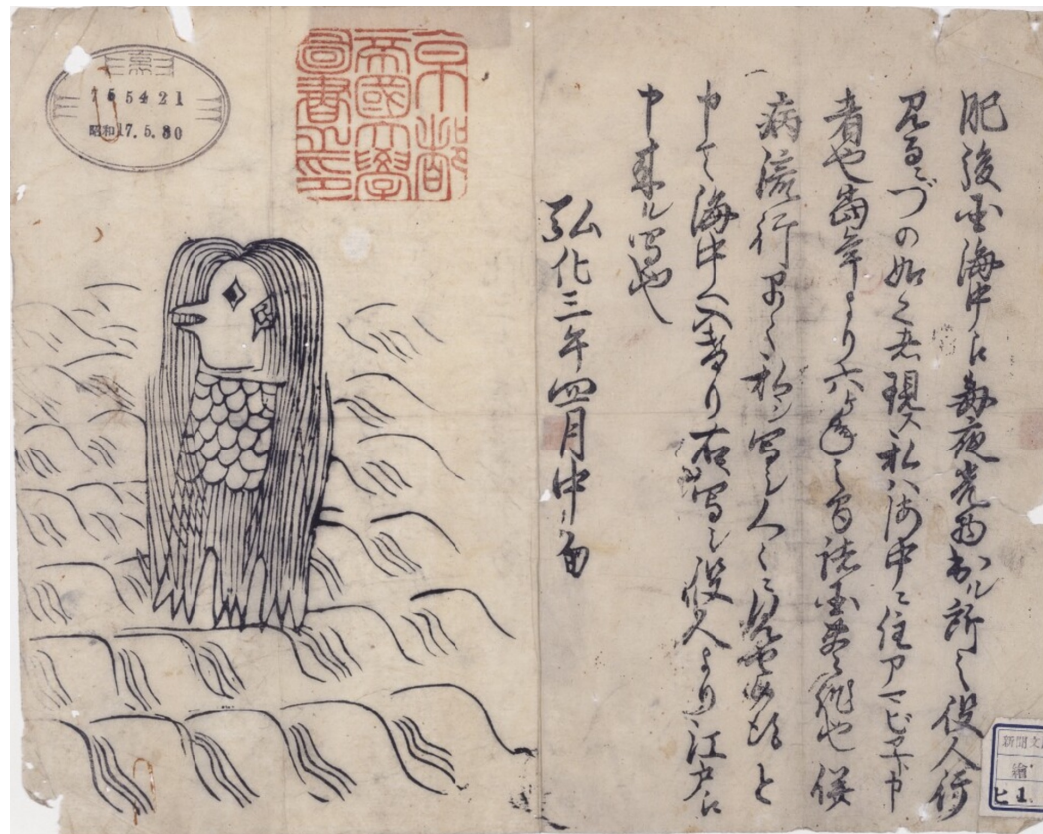 肥後国海中え毎夜光物出ル所之役人行
見るニづの如く者現ス私ハ海中ニ住アマビヱト申
者也当年より六ヶ年之間諸国豊作也併
病流行早々私ヲ写シ人々ニ見セ候得と
申て海中へ入けり右写シ役人より江戸え
申来ル写也
弘化三年四月中旬
京都
帝國大學
圖書之印
京
755421
昭和17.5.30
新聞文
繪
ヒ1